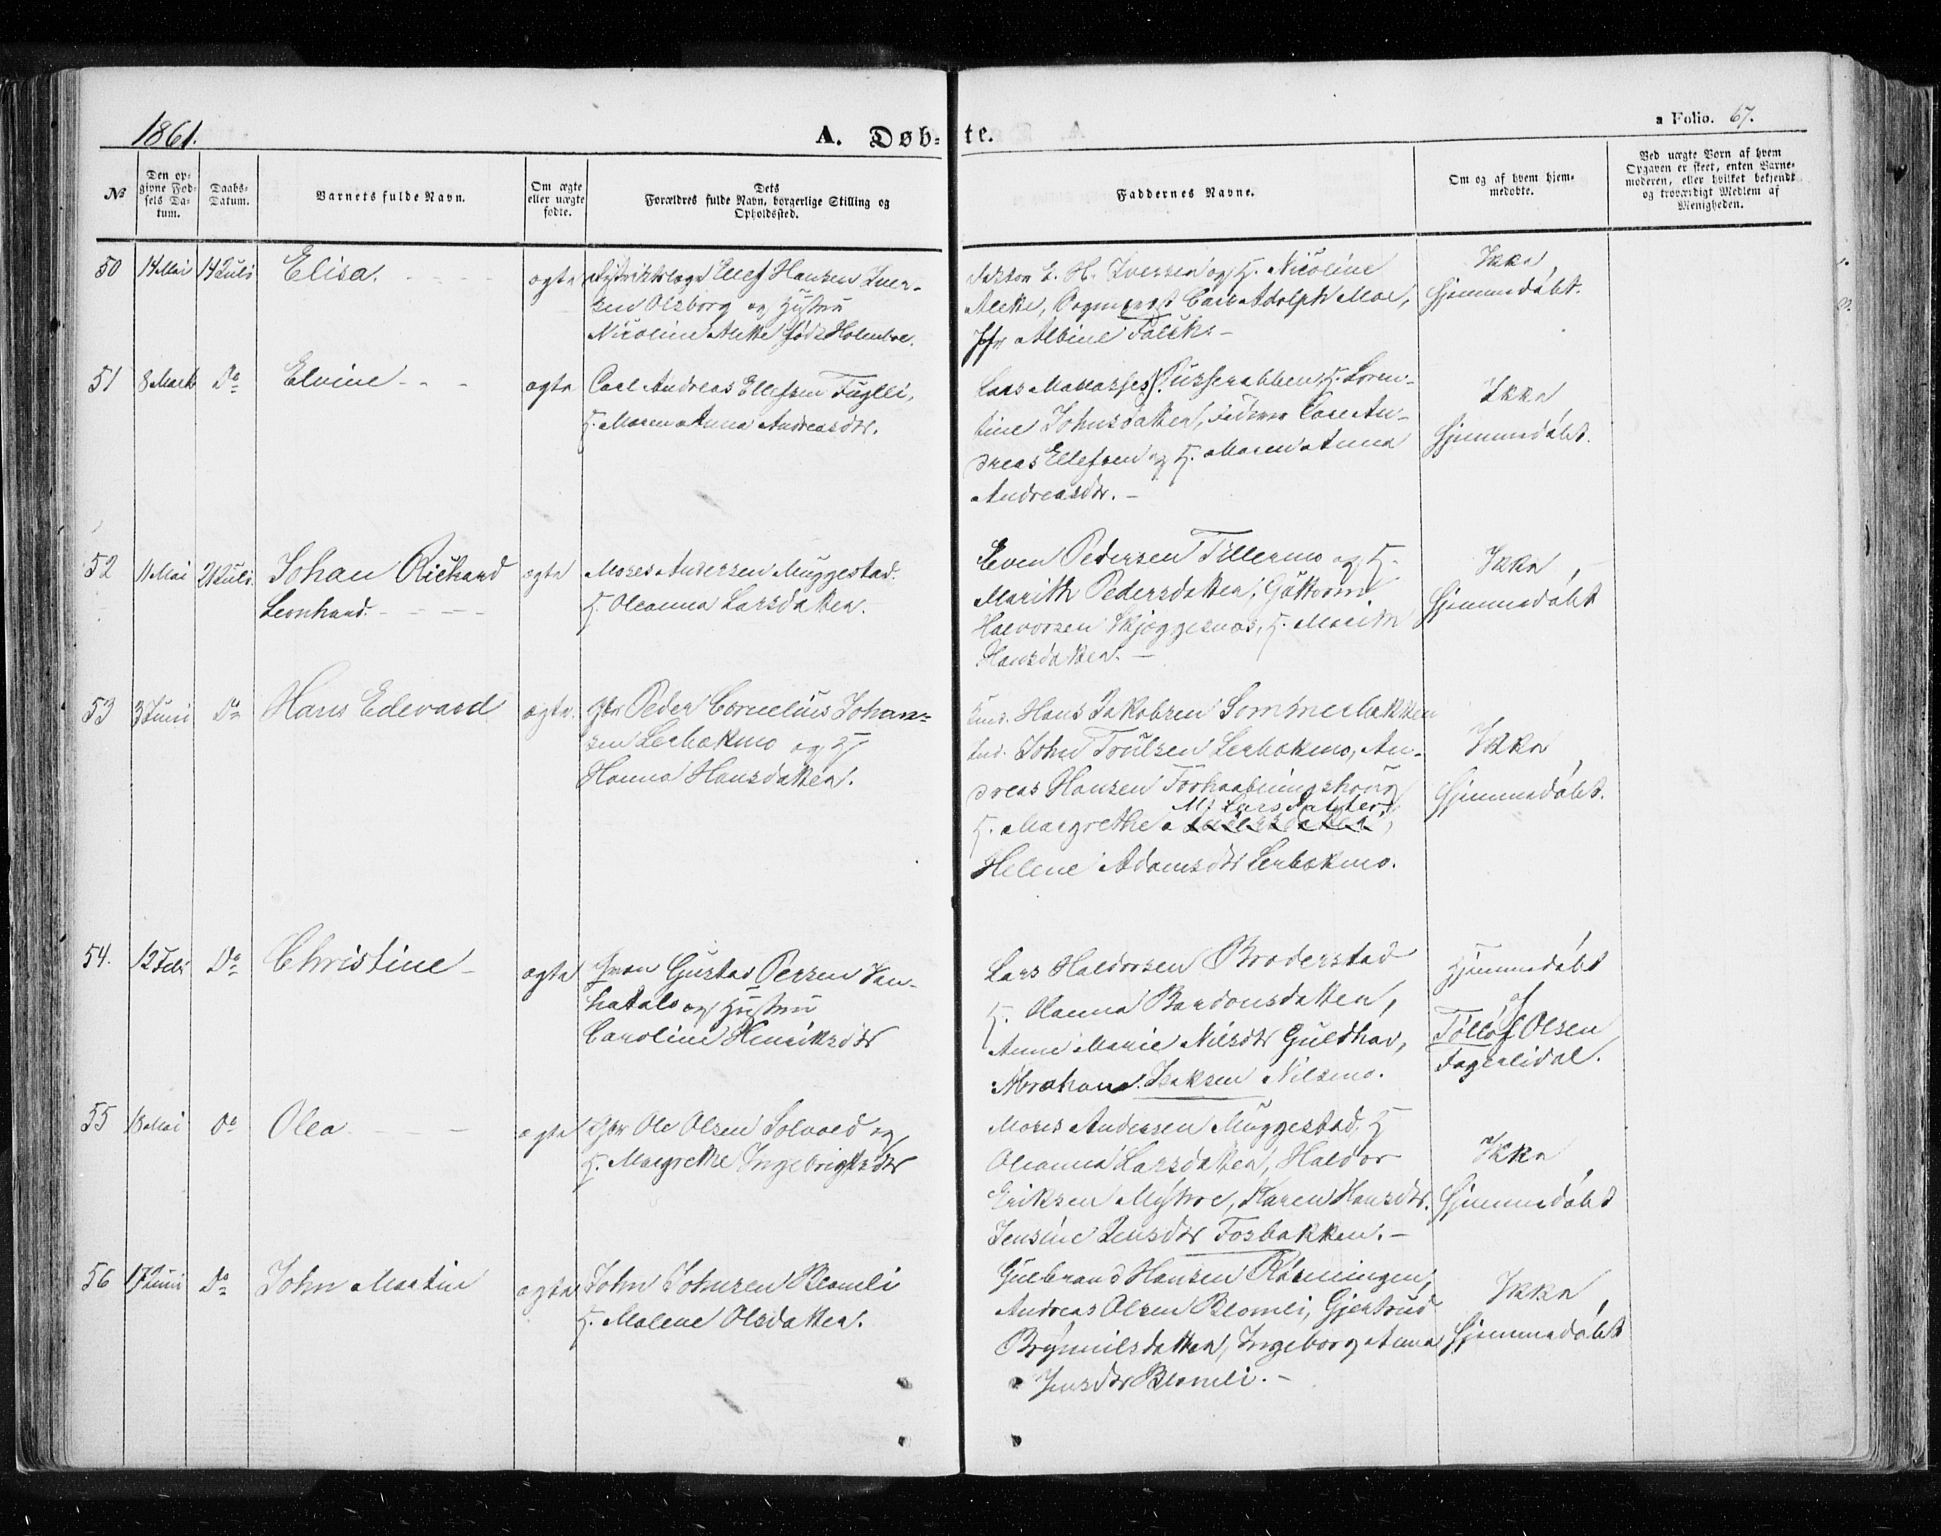 1861.
A. Døb-
te.
a Folio. 67.
№
Den op-
givne Fød-
sels Da-
tum.
Daabs-
Datum.
Barnets fulde Navn.
Om ægte
eller uægte
fødte.
Dets
Forældres fulde Navn, borgerlige Stilling og
Opholdssted.
Faddernes Navne.
Om og af hvem hjem-
medøbte.
Ved uægte Børn af hvem
Opgaven er skeet, enten Barne-
moderen, eller hvilket bekjendt
og troværdigt Medlem af
Menigheden.
50
14 Mai
14 Juli
Elisa.
ægte
Distriktslæge Ellef Hansen Iver-
sen Olsborg og Hustru
Nicoline Aletke født Holmboe.
Doktor E. H. Iversen og H. Nicoline
Aletke, Sogneprest Carl Adolph Moe,
Jfr Albine Falck.
Ikke
Hjemmedøbt.
51
8 Marts
Do
Elvine
ægte
Carl Andreas Ellefsen Fuglli,
H. Maren Anna Andreasdtr.
Lars Mallasses. H. Loren-
tine Johnsdatter, Faderen Carl An-
dreas Ellefsen og H. Maren Anna
Andreasdtr.
Ikke
Hjemmedøbt.
52
11 Mai
21 Juli
Johan Richard
Leonhard.
ægte
Moses Andersen Muggestad.
H. Oleanna Larsdatter.
Even Pedersen Tillermo og H.
Marith Pedersdatter, Guttorm
Halvorsen Skjæggesnæs, H. Marith
Hansdatter.
Ikke
Hjemmedøbt
53
3 Juni
Do
Hans Edevard
ægte
Gbr Peder Cornelius Johan-
sen Lerbakmo og H
Hanna Hansdatter.
Hans Jakobsen Sommerbakken
John Trulsen Lerbakmo, An-
dreas Hansen Forhaabningshoug
M. Larsdatter
H. Margrethe
Helene Adamsdtr Lerbakmo.
Ikke
Hjemmedøbt.
54.
12 Feb
Do
Christine
ægte
Gustav Persen Van-
hatalo og Hustru
Caroline Henriksdtr
Lars Haldorsen Broderstad
H. Hanna Bardonsdatter,
Anne Marie Nilsdtr Guldhav,
Abraham Isaksen Nilsmo.
Hjemmedøbt
af
Tollof Olsen
Fagerlidal.
55
13 Mai
Do
Olea
ægte
Gbr Ole Olsen Solvold og
H. Margrethe Ingebrigtsdtr
Moses Andersen Muggestad, H
Oleanna Larsdatter, Haldor
Eriksen Myhre, Karen Hansdtr.
Jensine Jensdtr Fosbakken.
Ikke
Hjemmedøbt
56
17 Juni
Do
John Martin
ægte
John Johnsen Blomli
H. Malene Olsdatter.
Gulbrand Hansen Rønningen,
Andreas Olsen Blomli, Gjertrud
Brynnilsdatter, Ingeborg Anna
Jensdtr Blomli.
Ikke
Hjemmedøbt